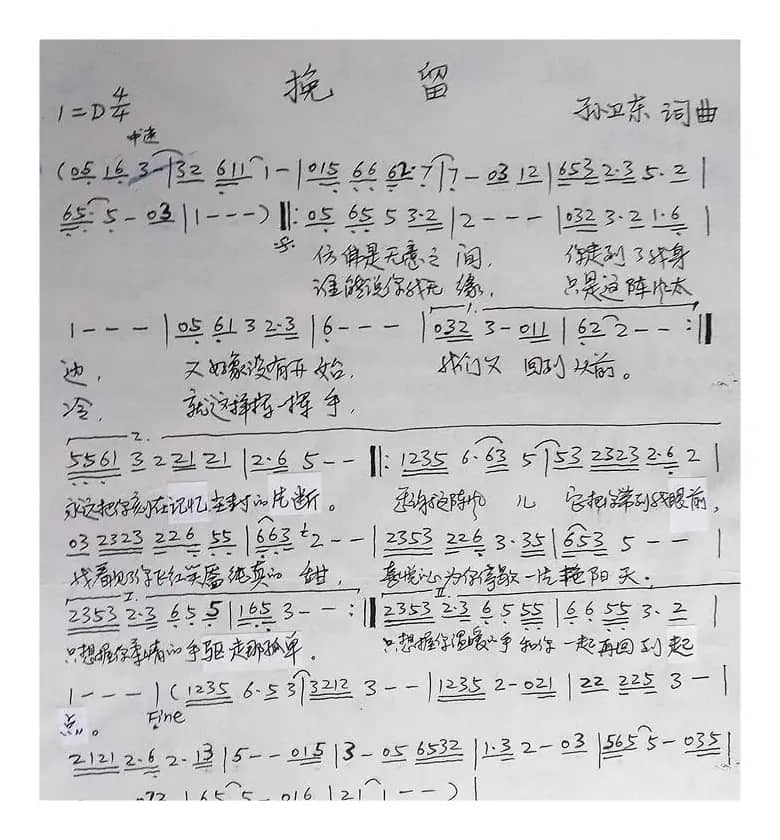 挽 留
1=D 4/4
中速
孙卫东 词曲
(05 16 3-|32 611 1-|015 66 62·7|7-03 12|653 2·3 5·2|
65· 5-03|1---)‖:05 65 5 3·2|2---|032 3·2 1·6|
仿佛是无意之间, 你走到了我身
谁能说你我无缘, 只是这阵风太
1---|05 61 3 2·3|6---|032 3-011|62 2--:‖
1.
边, 又好象没有开始, 我们又回到从前。
冷, 就这样挥一挥手,
2.
5561 3 2 21 21|2·6 5--‖:1235 6·63 5|53 2323 2·6 2|
永远把你刻在记忆尘封的片断。 还谢这阵风儿 它把你带到我眼前,
03 2323 226 55|663 2--|2353 226 3·35|653 5--|
我看见了你飞红笑靥纯真的甜, 喜悦心为你停歇一片艳阳天。
I. II.
2353 2·3 6 5 5|165 3--:‖2353 2·3 6 5 55|66 55 3·2|
只想握你柔情的手驱走那孤单。 只想握你温暖的手和你一起再回到起
1---|(1235 6·5 3|3212 3--|1235 2-021|22 225 3-|
点。 Fine
2121 2·6 2·13|5--015|3-05 6532|1·3 2-03|565 5-035|
72|65 5-016|21 1--)|